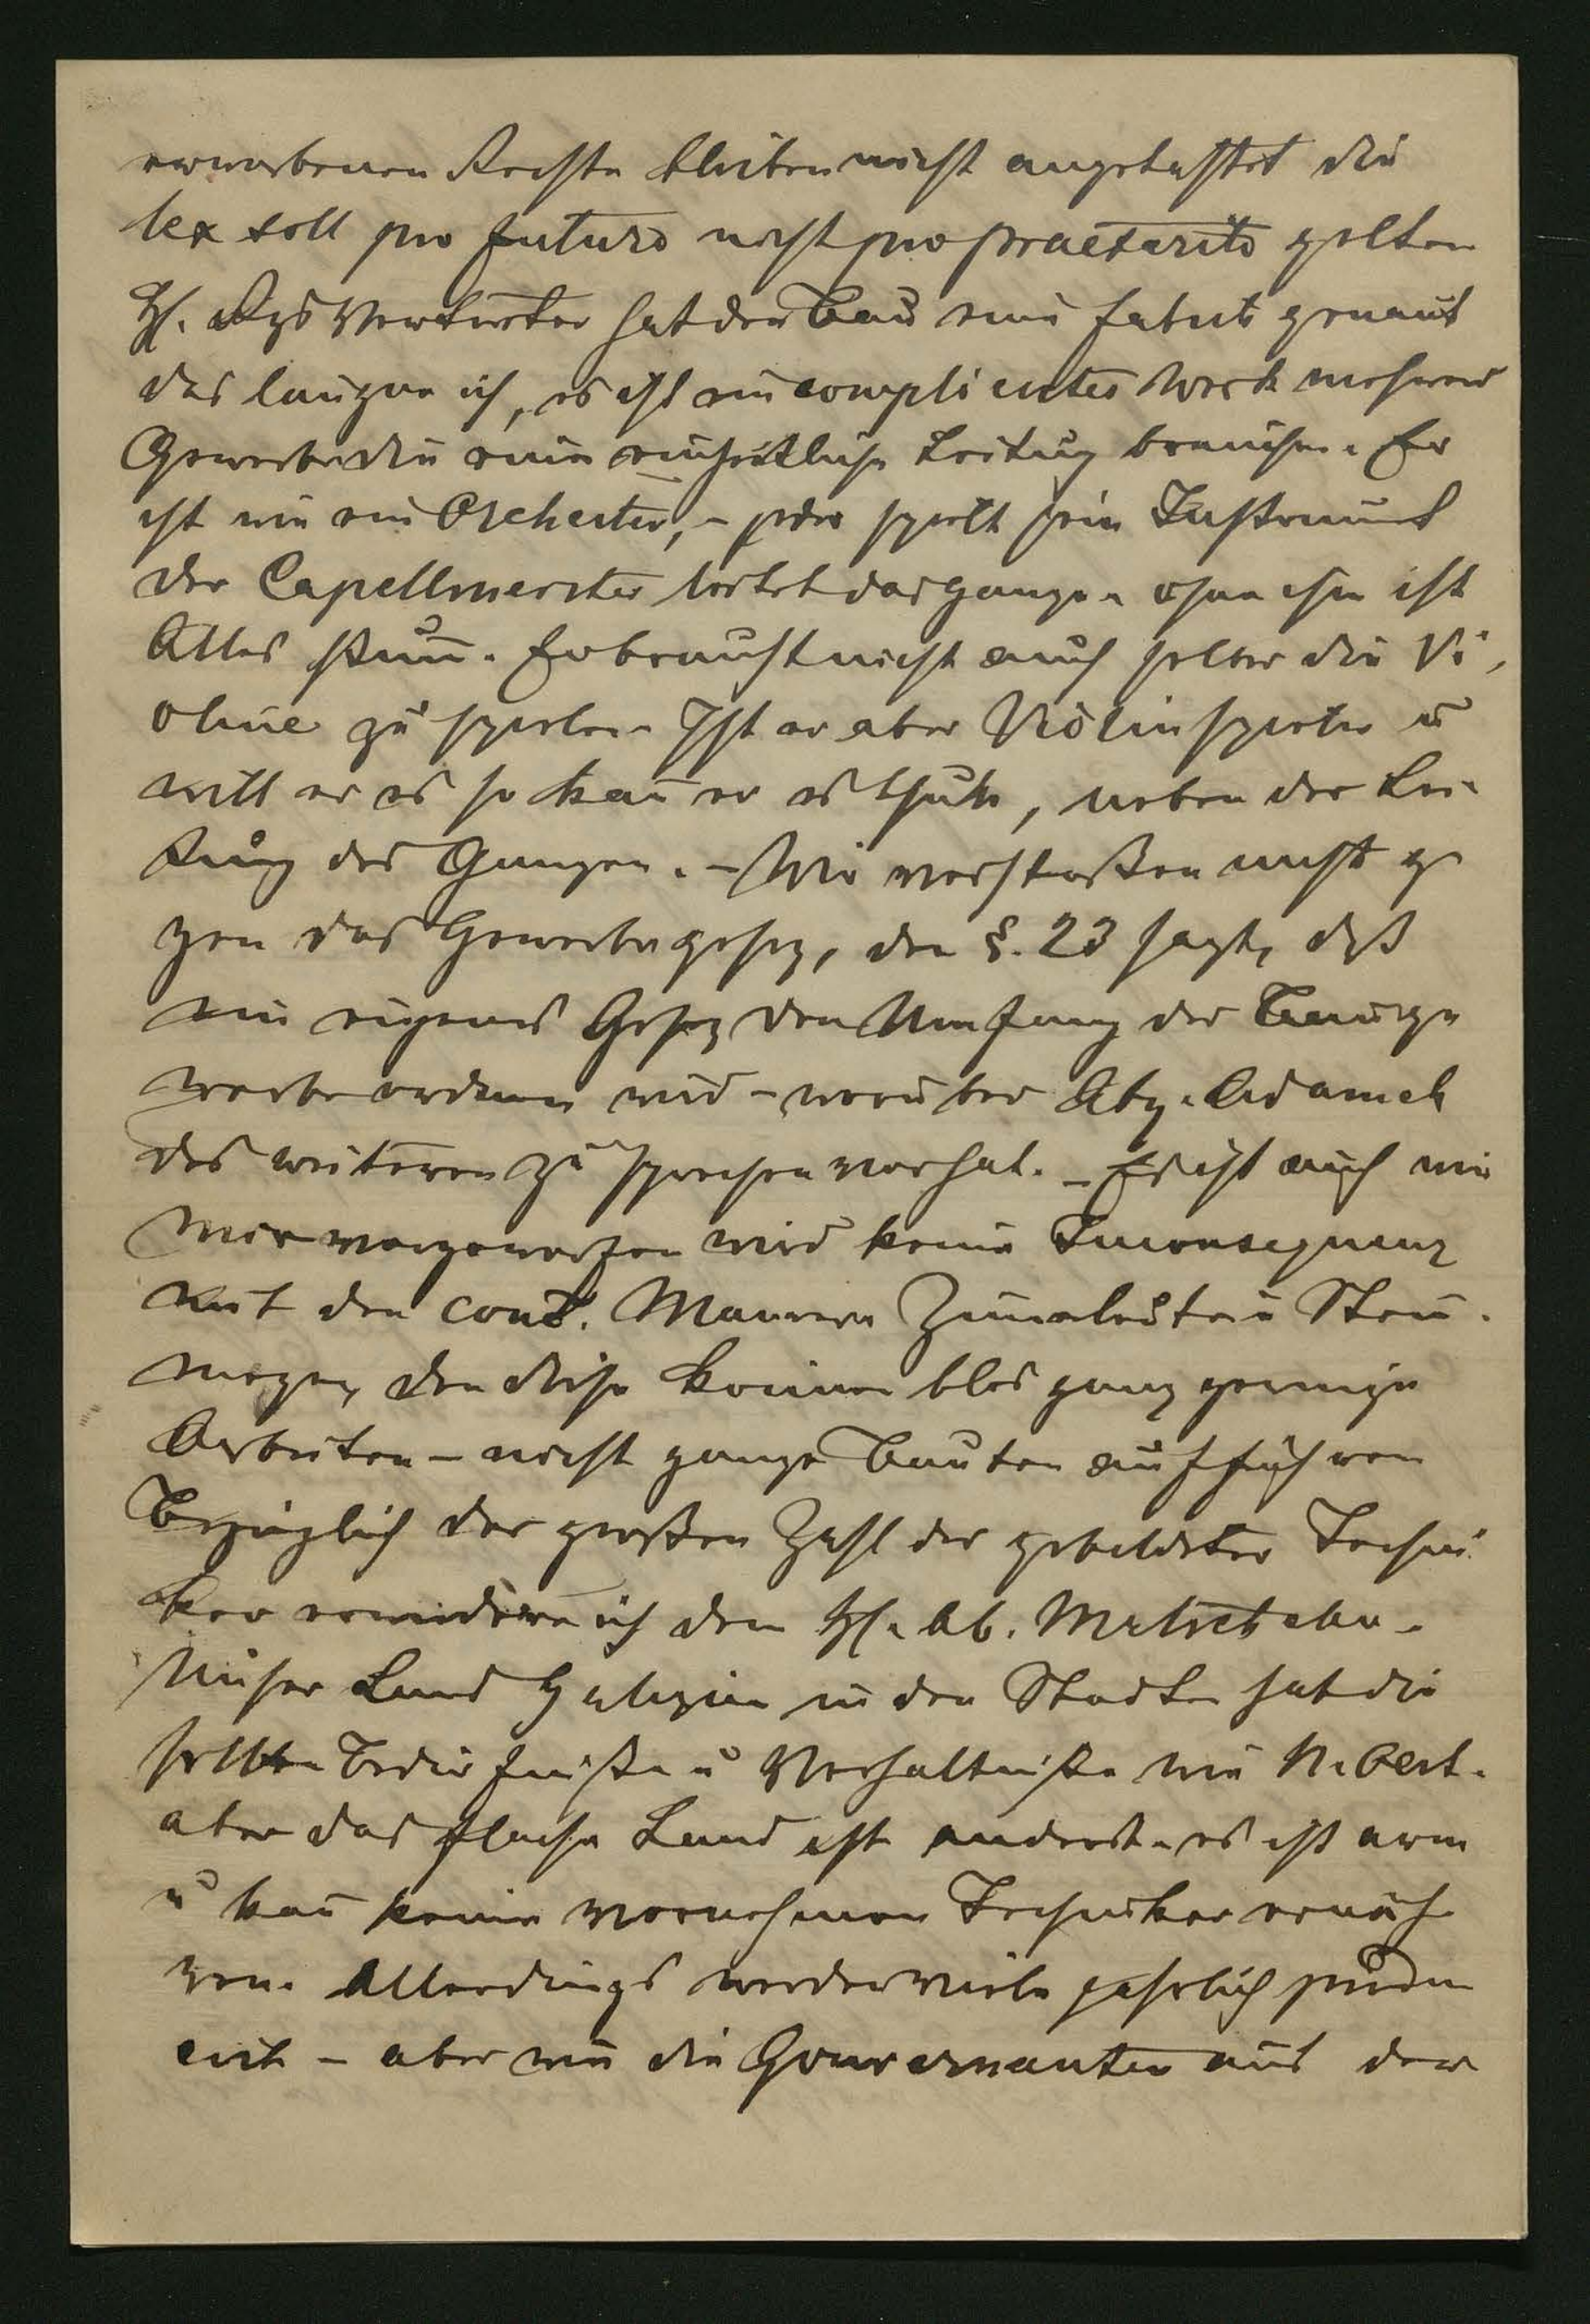 erworbenen Rechte bleiben nicht angetastet die
lex soll pro futuro nicht pro praeterito gelten
H. Rgs Vertreter hat den Bau eine fabrik genant
das laugne ich, es ist ein complicirtes Werk mehrerer
Gewerbe die eine einheitliche Leitug brauchen. Er
ist wie ein Orchester, – jeder spielt sein Instrument
der Capellmeister leitet das ganze – ohne ihn ist
Alles stum̄. Er braucht nicht auch selber die Vi-
oline zu spielen – Ist er aber Violinspieler u
will er es so kan̄ er es thun, neben der Lei-
tung des Ganzen. – Wir verstoßen nicht ge
gen das Gewerbegesez, den §. 23 sagt, daß
ein eigenes Gesez den Umfang der Bauge
werbe ordnen wird – worüber Abg. Adamek
des weiteren zu sprechen vorhat. – Es ist auch wie
mir vorgeworfen wird keine Inconsequenz
mit den conc. Maurern Zimerleuten u Stein-
mezen, den diese können blos ganz geringe
Arbeiten – nicht ganze Bauten aufführen
Bezüglich der großen Zahl der gebildeter Techni
ker erwidere ich dem H. Ab.
Unser Land Galizien in den Städten hat die
selben Bedürfniße u Verhältniße wie N. Oest.
aber das flache Land ist anders – es ist arm
u kan̄ keine vornehmen Techniker ernäh
ren. Allerdings werden viele jährlich
– aber wie die Gouvernanten aus der